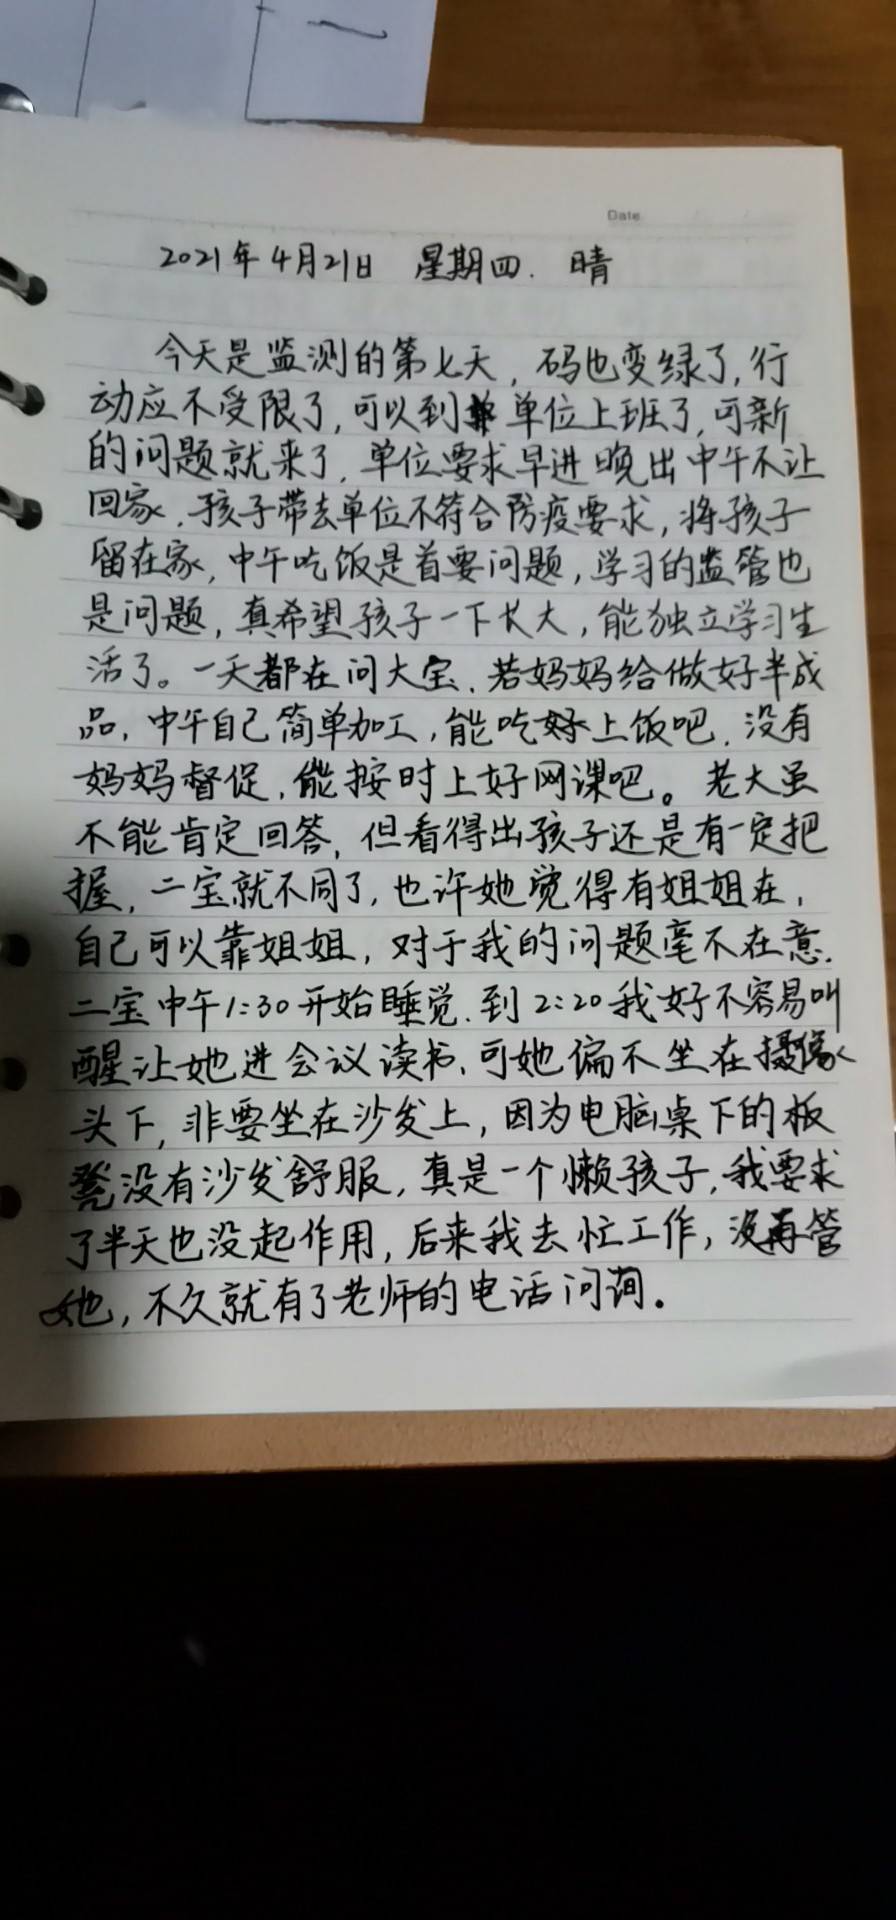 Date
2021年4月21日 星期四. 晴
今天是监测的第七天，码也变绿了，行
动应不受限了，可以到单位上班了，可新
的问题就来了，单位要求早进晚出中午不让
回家，孩子带去单位不符合防疫要求，将孩子
留在家，中午吃饭是首要问题，学习的监管也
是问题，真希望孩子一下长大，能独立学习生
活了。一天都在问大宝，若妈妈给做好半成
品，中午自己简单加工，能吃好上饭吧，没有
妈妈督促，能按时上好网课吧。老大虽
不能肯定回答，但看得出孩子还是有一定把
握，二宝就不同了，也许她觉得有姐姐在，
自己可以靠姐姐，对于我的问题毫不在意.
二宝中午1:30开始睡觉.到2:20我好不容易叫
醒让她进会议读书、可她偏不坐在摄像
头下，非要坐在沙发上，因为电脑桌下的板
凳没有沙发舒服，真是一个懒孩子，我要求
了半天也没起作用，后来我去忙工作，没再管
她，不久就有了老师的电话问询。